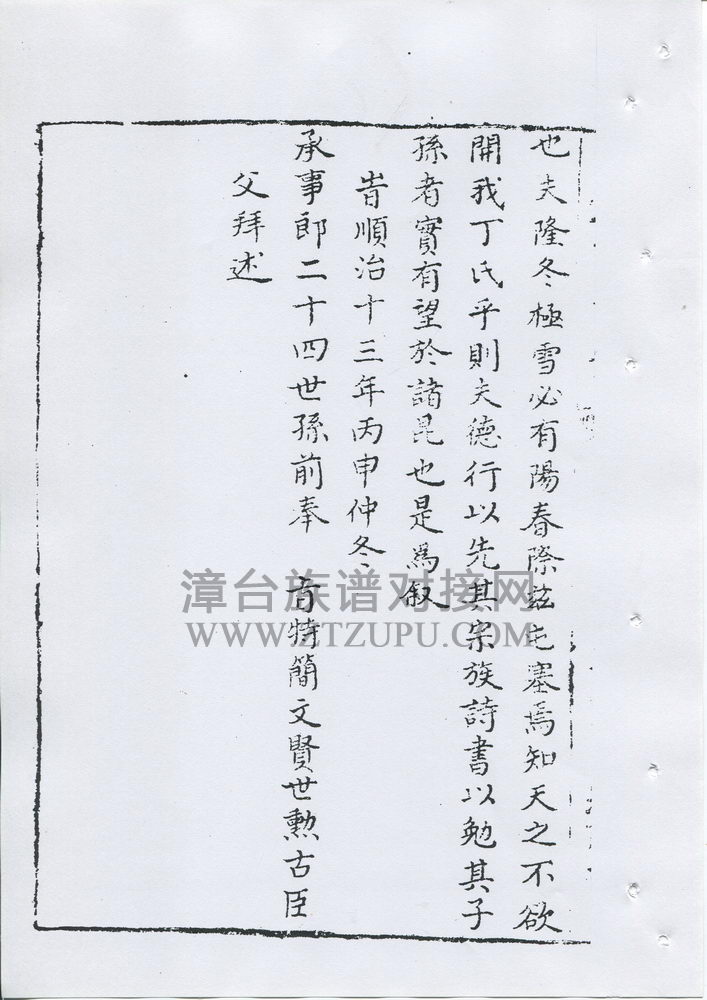 也夫隆冬極雪必有陽春際茲屯塞焉知天之不欲
開我丁氏乎則夫德行以先其宗族詩書以勉其子
孫者實有望於諸昆也是為叙
旹順治十三年丙申仲冬
承事郎二十四世孫前奉 旨特簡文賢世勲古臣
父拜述
漳台族谱对接网
WWW.ZTZUPU.COM